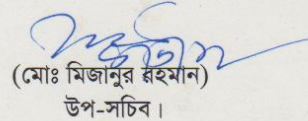 (মোঃ মিজানুর রহমান)
উপ-সচিব।